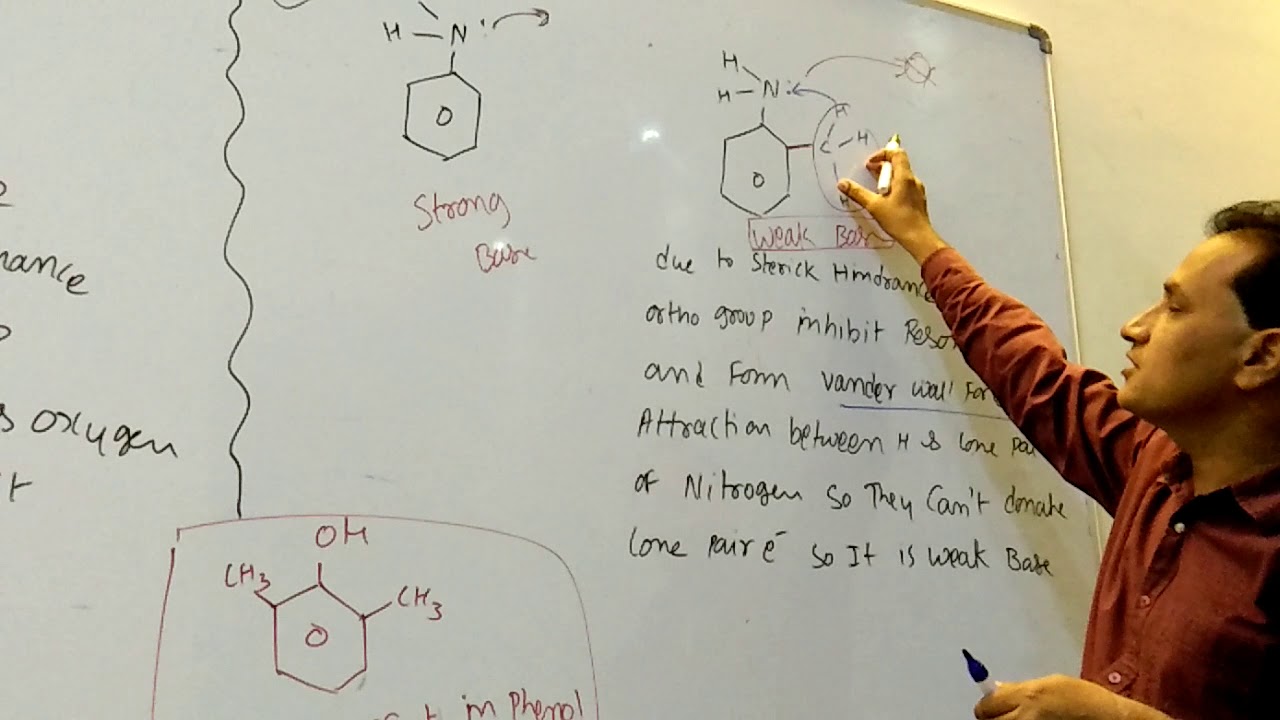 H - N :
O
Strong
Base
H
H - N :
H
C - H
H
O
Weak Base
due to Sterick Hindrance
ortho group inhibit
and Form vander wall
Attraction between H &
of Nitrogen So They Can't donate
lone pair e⁻ So It is weak Base
nance
oxygen
OH
CH3
CH3
O
in Phenol